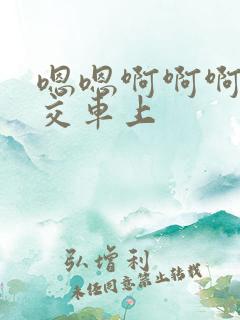 嗯嗯啊啊啊
交车上
弘增利
未经同意禁止转载